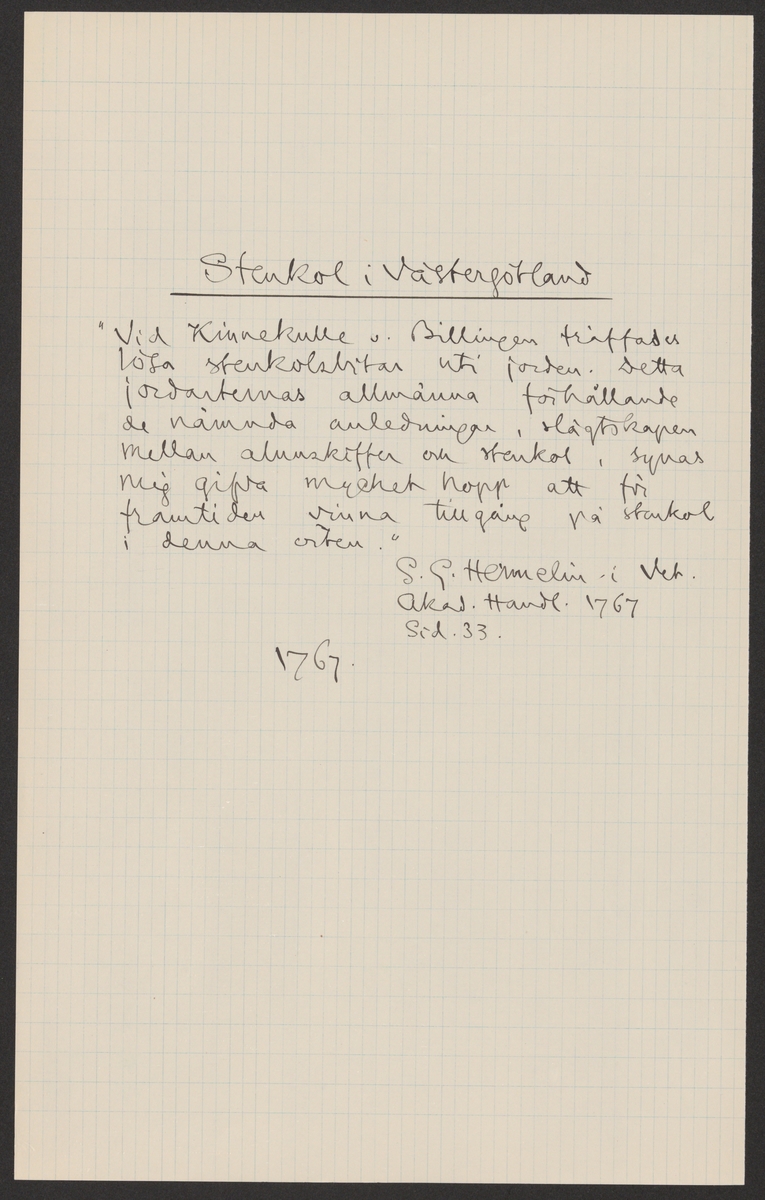 Stenkol i Västergötland
"Vid Kinnekulle o. Billingen träffades
lösa stenkolsbitar uti jorden. Detta
jordarternas allmänna förhållande
de nämnda anledningar, slägtskapen
mellan alunskiffer och stenkol, synas
mig gifva mycket hopp att för
framtiden vinna tillgång på stenkol
i denna orten."
S. G. Hermelin i Vet.
Akad. Handl. 1767
Sid. 33.
1767.